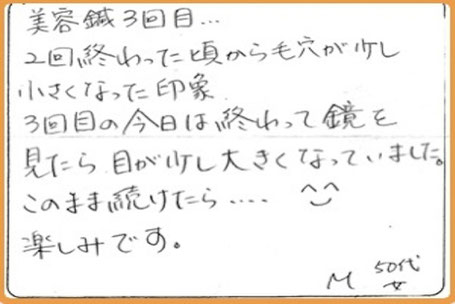 美容鍼3回目…
2回終わった頃から毛穴が少し
小さくなった印象
3回目の今日は終わって鏡を
見たら目が少し大きくなっていました。
このまま続けたら‥‥ ^‿^
楽しみです。
M 50代
女